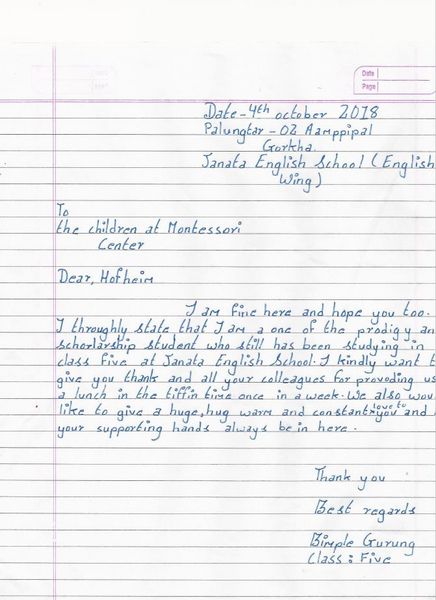 Date
Page
Date-4th october 2018
Palungtar-02 Aamppipal
Gorkha.
Janata English School (English
Wing)
To
the children at Montessori
Center
Dear, Hofheim
I am fine here and hope you too.
I throughly state that I am a one of the prodigy an
schorlarship student who still has been studying in
class five at Janata English School. I kindly want t
give you thank and all your colleagues for provoding us
a lunch in the tiffin time once in a week. We also wou
like to give a huge, hug warm and constant love to you and
your supporting hands always be in here.
Thank you
Best regards
Bimple Gurung
class : Five